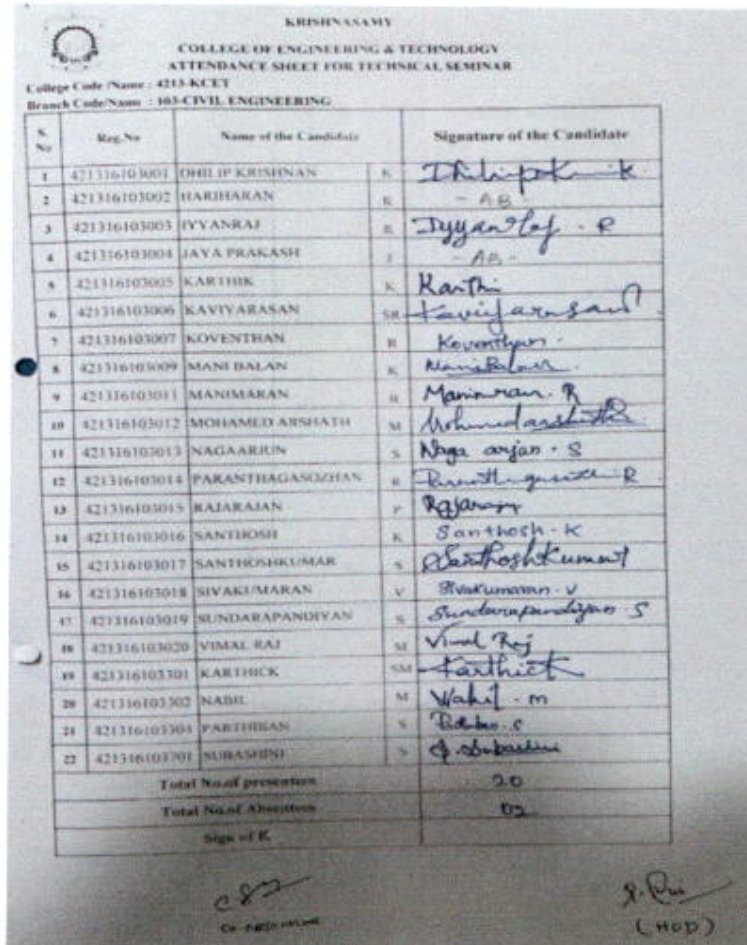 KRISHNASAMY
COLLEGE OF ENGINEERING & TECHNOLOGY
ATTENDANCE SHEET FOR TECHNICAL SEMINAR
College Code /Name : 4213-KCET
Branch Code/Name : 103-CIVIL ENGINEERING
S. No Reg.No Name of the Candidate Signature of the Candidate
1 421316103001 DHILIP KRISHNAN K
2 421316103002 HARIHARAN - AB -
3 421316103003 IYYANRAJ R Iyyanraj - R
4 421316103004 JAYA PRAKASH J - AB -
5 421316103005 KARTHIK K Karthi
6 421316103006 KAVIYARASAN SR Kaviyarasan
7 421316103007 KOVENTHAN Koventhan
8 421316103009 MANI BALAN K ManiBalan
9 421316103011 MANIMARAN Manimaran. R
10 421316103012 MOHAMED ARSHATH M
11 421316103013 NAGAARJUN S Naga arjan . S
12 421316103014 PARANTHAGASOZHAN R
13 421316103015 RAJARAJAN P
14 421316103016 SANTHOSH K Santhosh - K
15 421316103017 SANTHOSHKUMAR S SanthoshKumar
16 421316103018 SIVAKUMARAN V Sivakumaran - V
17 421316103019 SUNDARAPANDIYAN S Sundarapandiyan - S
18 421316103020 VIMAL RAJ M Vimal Raj
19 421316103301 KARTHICK SM Karthick
20 421316103302 NABIL M
21 421316103304 PARTHIBAN S
22 421316103701 SUBASHINI S Subashini
Total No.of presenters 20
Total No.of Absentees 02
Sign of
(HOD)